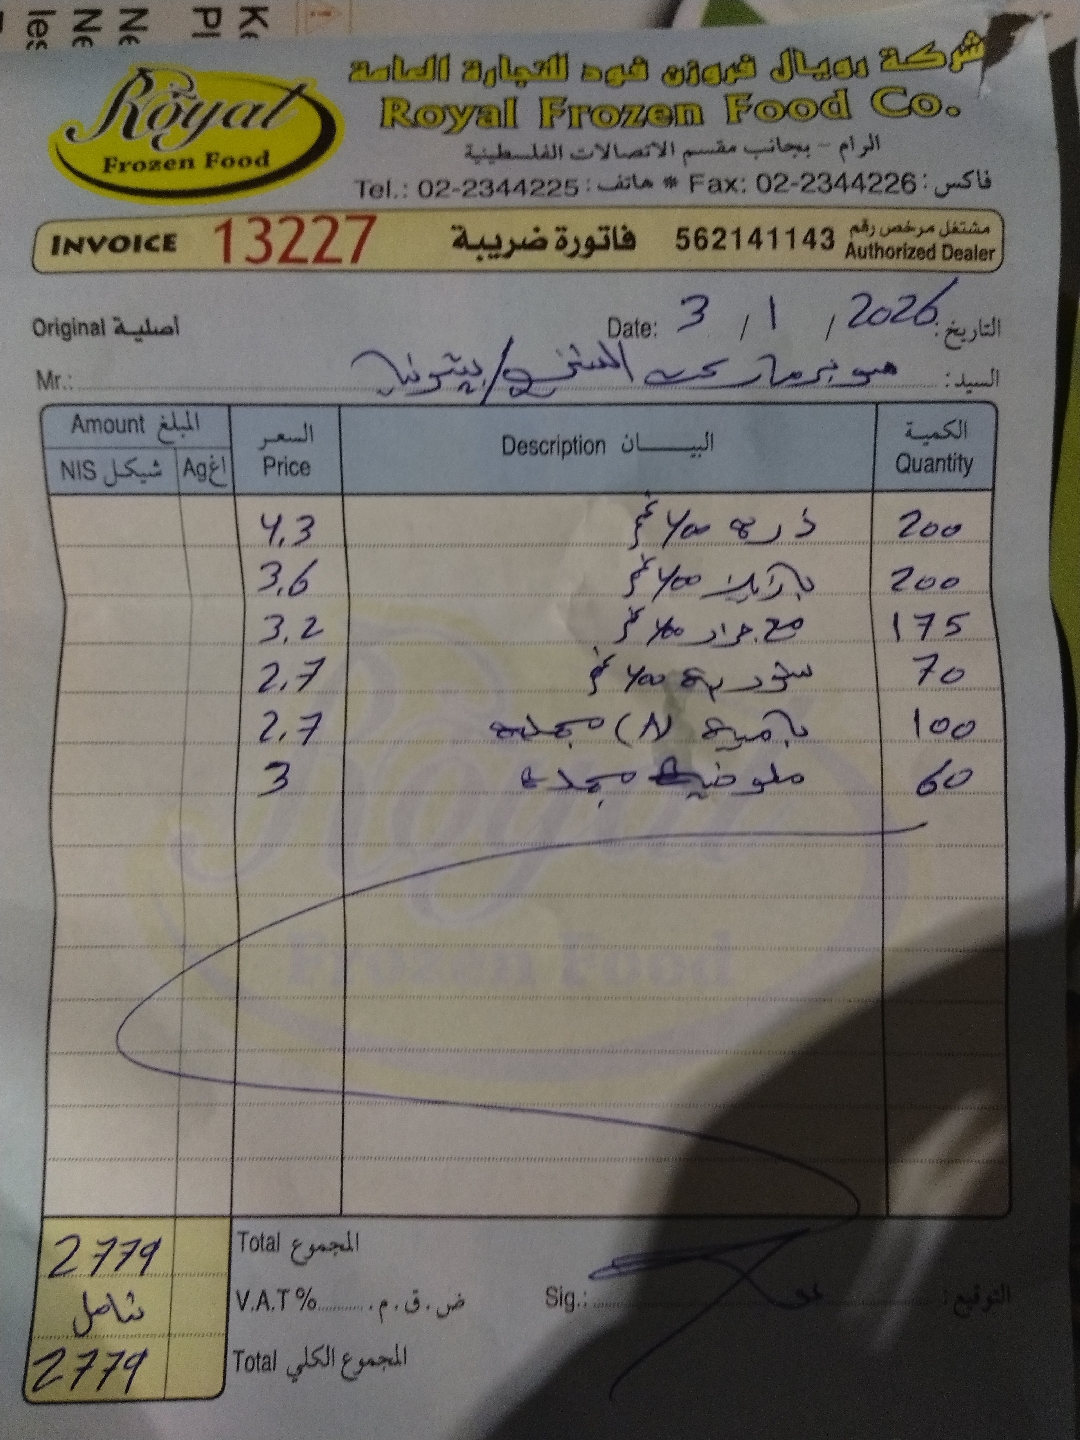 شركة رويال فروزن فود للتجارة العامة
Royal Frozen Food Co.
Royal
Frozen Food
الرام - بجانب مقسم الاتصالات الفلسطينية
Tel.: 02-2344225 : هاتف * Fax: 02-2344226 : فاكس
INVOICE 13227 فاتورة ضريبة 562141143 مشتغل مرخص رقم
Authorized Dealer
Original أصلية
Date: 3 / 1 / 2026 التاريخ:
Mr.: سوبرماركت / بيتونيا السيد:
Amount المبلغ
NIS شيكل
Ag اغ
السعر Price
Description البيــــان
الكمية Quantity
4.3 ذرة ٤٠٠ غم 200
3.6 بازيلا ٤٠٠ غم 200
3.2 جزر ٤٠٠ غم 175
2.7 ٤٠٠ غم 70
2.7 بامية 100
3 ملوخية 60
2779 Total المجموع
شامل V.A.T % ض.ق.م. Sig.: التوقيع:
2779 Total المجموع الكلي